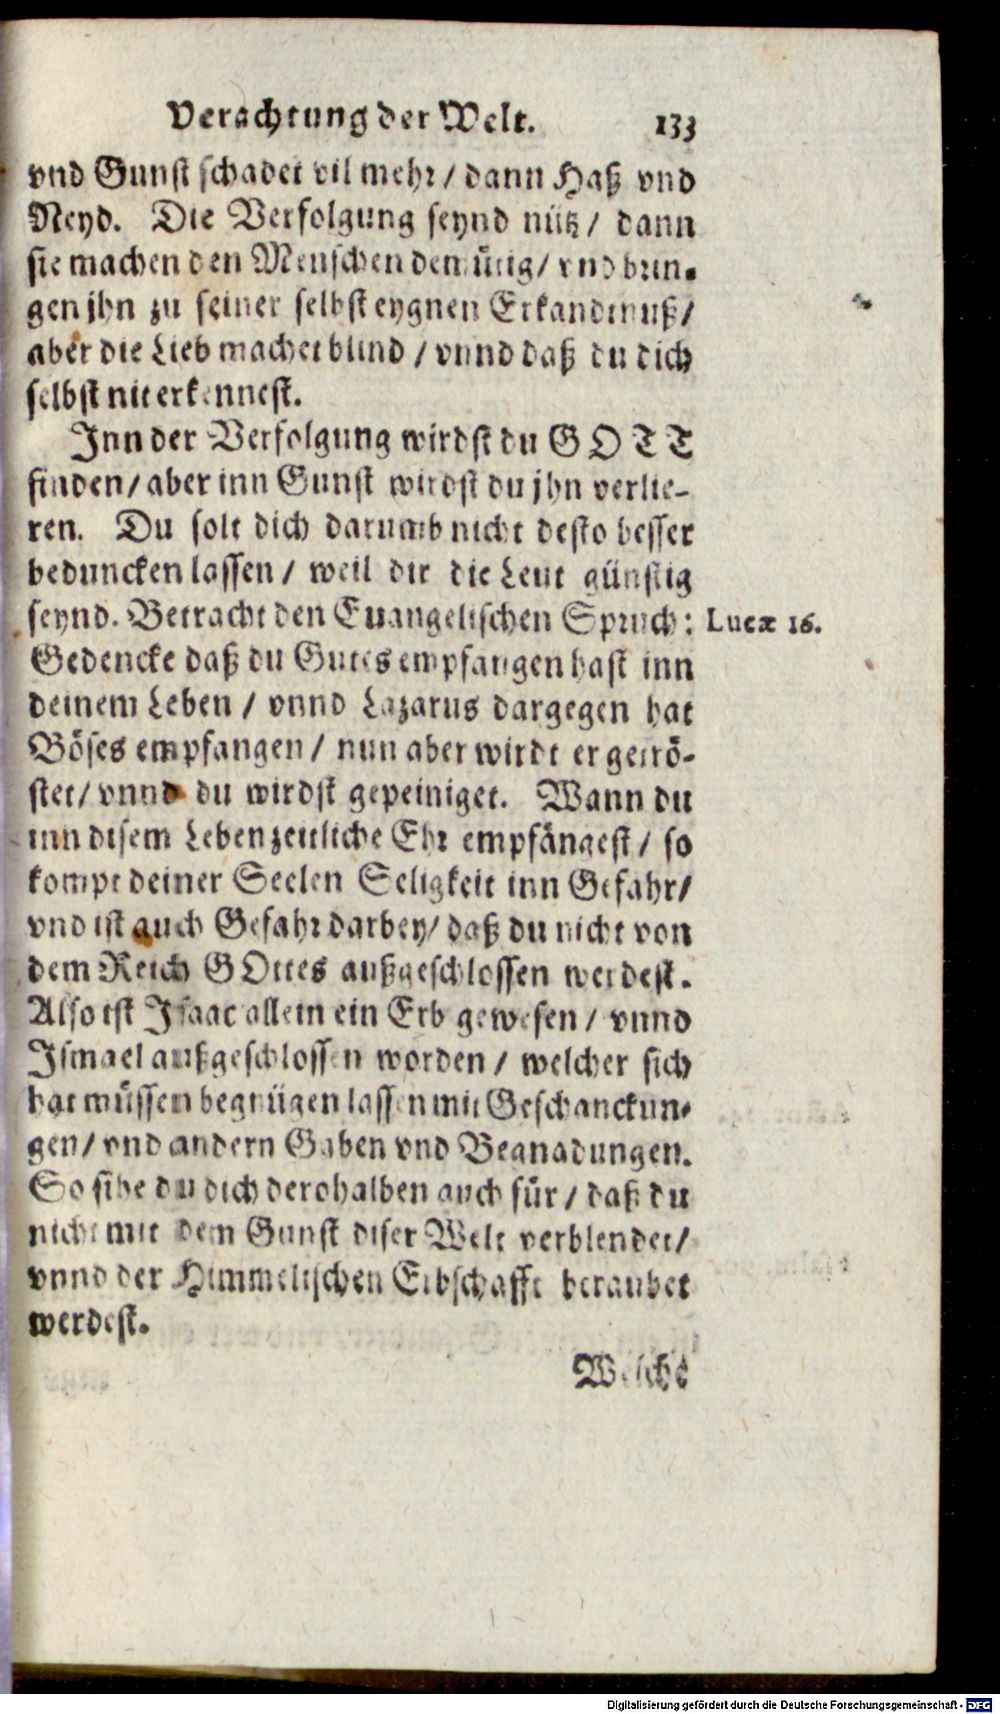 Verachtung der Welt. 133
vnd Gunst schadet vil mehr / dann Haß vnd
Neyd. Die Verfolgung seynd nütz / dann
sie machen den Menschen demütig / vnd brin-
gen jhn zu seiner selbst eygnen Erkandtnuß /
aber die Lieb machet blind / vnnd daß du dich
selbst nit erkennest.
Inn der Verfolgung wirdst du GOTT
finden / aber inn Gunst wirdst du jhn verlie-
ren. Du solt dich darumb nicht desto besser
beduncken lassen / weil dir die Leut günstig
seynd. Betracht den Euangelischen Spruch: Lucæ 16.
Gedencke daß du Gutes empfangen hast inn
deinem Leben / vnnd Lazarus dargegen hat
Böses empfangen / nun aber wirdt er getrö-
stet / vnnd du wirdst gepeiniget. Wann du
inn disem Leben zeitliche Ehr empfängest / so
kompt deiner Seelen Seligkeit inn Gefahr /
vnd ist auch Gefahr darbey / daß du nicht von
dem Reich GOttes außgeschlossen werdest.
Also ist Isaac allein ein Erb gewesen / vnnd
Ismael außgeschlossen worden / welcher sich
hat müssen begnügen lassen mit Geschanckun-
gen / vnd andern Gaben vnd Begnadungen.
So sihe du dich derohalben auch für / daß du
nicht mit dem Gunst diser Welt verblendet /
vnnd der Himmelischen Erbschafft beraubet
werdest.
Welche
Digitalisierung gefördert durch die Deutsche Forschungsgemeinschaft - DFG